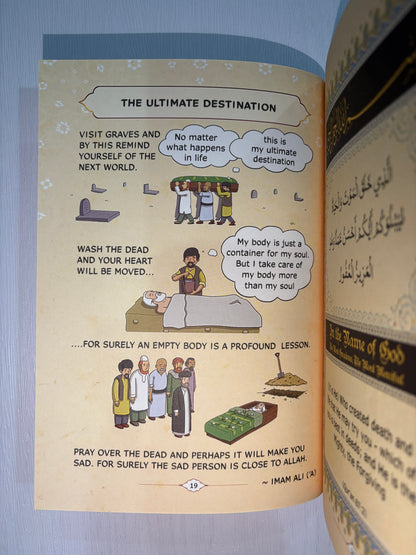 THE ULTIMATE DESTINATION
VISIT GRAVES AND
BY THIS REMIND
YOURSELF OF THE
NEXT WORLD.
No matter
what happens
in life
this is
my ultimate
destination
WASH THE DEAD
AND YOUR HEART
WILL BE MOVED...
My body is just a
container for my soul.
But I take care of
my body more
than my soul
....FOR SURELY AN EMPTY BODY IS A PROFOUND LESSON.
PRAY OVER THE DEAD AND PERHAPS IT WILL MAKE YOU
SAD. FOR SURELY THE SAD PERSON IS CLOSE TO ALLAH.
~ IMAM ALI (ʿA)
19
الَّذِي خَلَقَ الْمَوْتَ وَالْحَيَاةَ
لِيَبْلُوَكُمْ أَيُّكُمْ أَحْسَنُ عَمَلًا وَهُوَ
الْعَزِيزُ الْغَفُورُ
In the Name of God
Who created death and
that he may try you – which of
best in deeds: and He is the
Mighty, the Forgiving